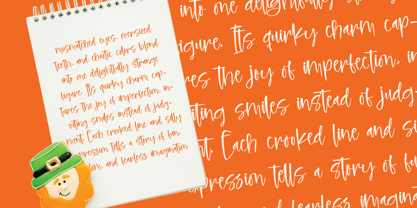 mismatched eyes, oversized
teeth, and chaotic colors blend
into one delightfully strange
figure. Its quirky charm cap-
tures the joy of imperfection, in-
viting smiles instead of judg-
ment. Each crooked line and silly
expression tells a story of fun,
and fearless imagination
into one delightfully
igure. Its quirky charm cap-
res the joy of imperfection, in
iting smiles instead of judg
nt. Each crooked line and si
pression tells a story of fu
and fearless imagina